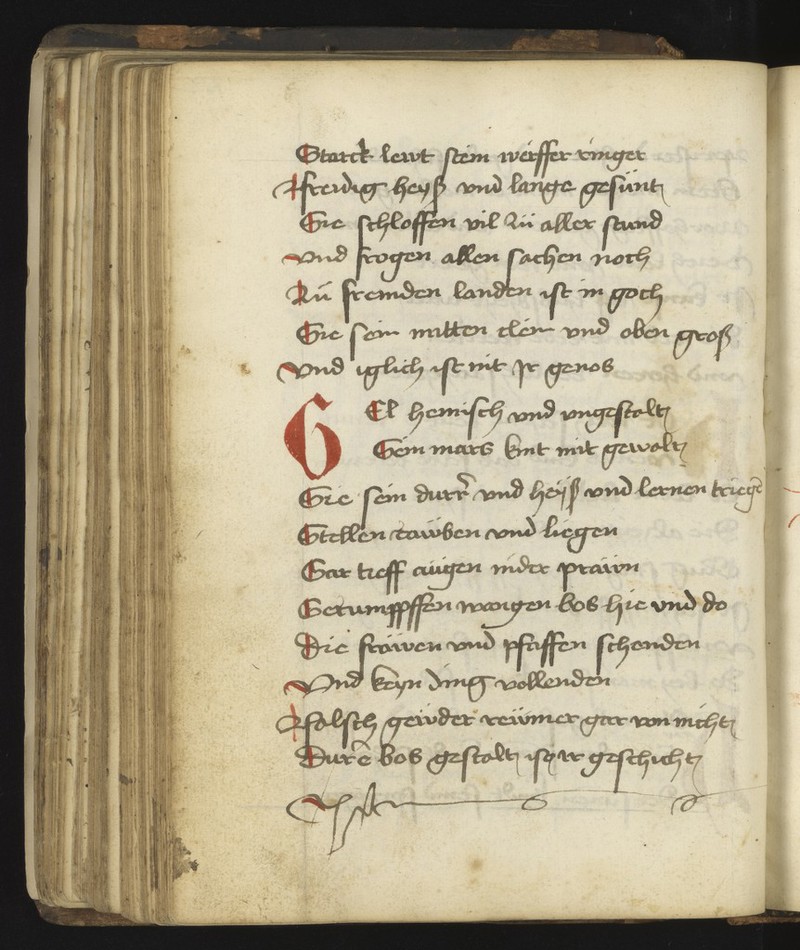 Starck lewt stein werffer ringer
Afreidig heyß vnd lange gesünt
Sie schloffen vil zü aller stund
vnd frogen allen sachen noch
Zü fremden landen ist in goch
Sie sein mitten clein vnd oben groß
vnd iglich ist nit Ir genos
GEl hemisch vnd vngestalt
Sein mars kint mit gewalt
Sie sein durr vnd heyß vnd lernen triegē
Stellen rawben vnd liegen
Gar tieff augen in der prawn
Gerumppffen wangen bos hie vnd do
Die frawen vnd pfaffen schenden
Vnd keyn ding vollenden
Afalsch gewder rewmer gar von nicht
Dure bos gestalt ist ir geschicht